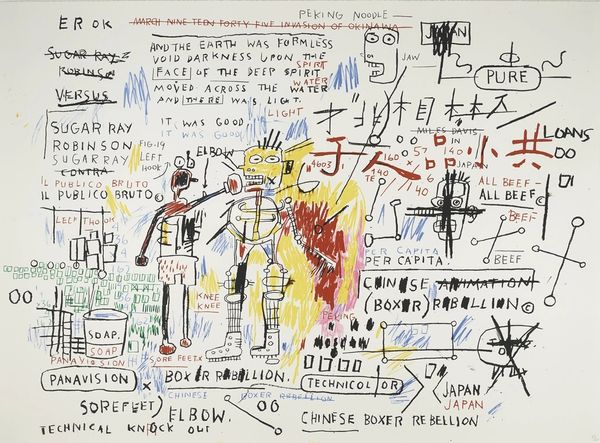 PEKING NOODLE
EROK
MARCH NINE TEEN FORTY FIVE INVASION OF OKINAWA
AND THE EARTH WAS FORMLESS
VOID DARKNESS UPON THE
SPIRIT
FACE OF THE DEEP SPIRIT
WATER
MOVED ACROSS THE WATER
AND THERE WAS LIGHT.
LIGHT
IT WAS GOOD
IT WAS GOOD
SUGAR RAY
ROBINSON
VERSUS
JAW
JAPAN
PURE
SUGAR RAY
ROBINSON
SUGAR RAY
CONTRA
FIG.19
LEFT
HOOK
IL PUBLICO BRUTO
IL PUBLICO BRUTO©
ELBOW
MILES DAVIS
IN
JAPAN
木
人品小共
4603
160
140
57
140
LOANS
ALL BEEF
ALL BEEF
BEEF
LEFT HOOK
PER CAPITA
PER CAPITA.
CHINESE ANIMATION
(BOXER) REBELLION ©
KNEE
KNEE
PEKING
SOAP.
SOAP
PANAVISION
SORE FEET
PANAVISION
X
BOXER REBELLION.
TECHNICOLOR
CHINESE BOXER REBELLION
JAPAN
JAPAN
SOREFEET
ELBOW.
TECHNICAL KNOCK OUT
CHINESE BOXER REBELLION